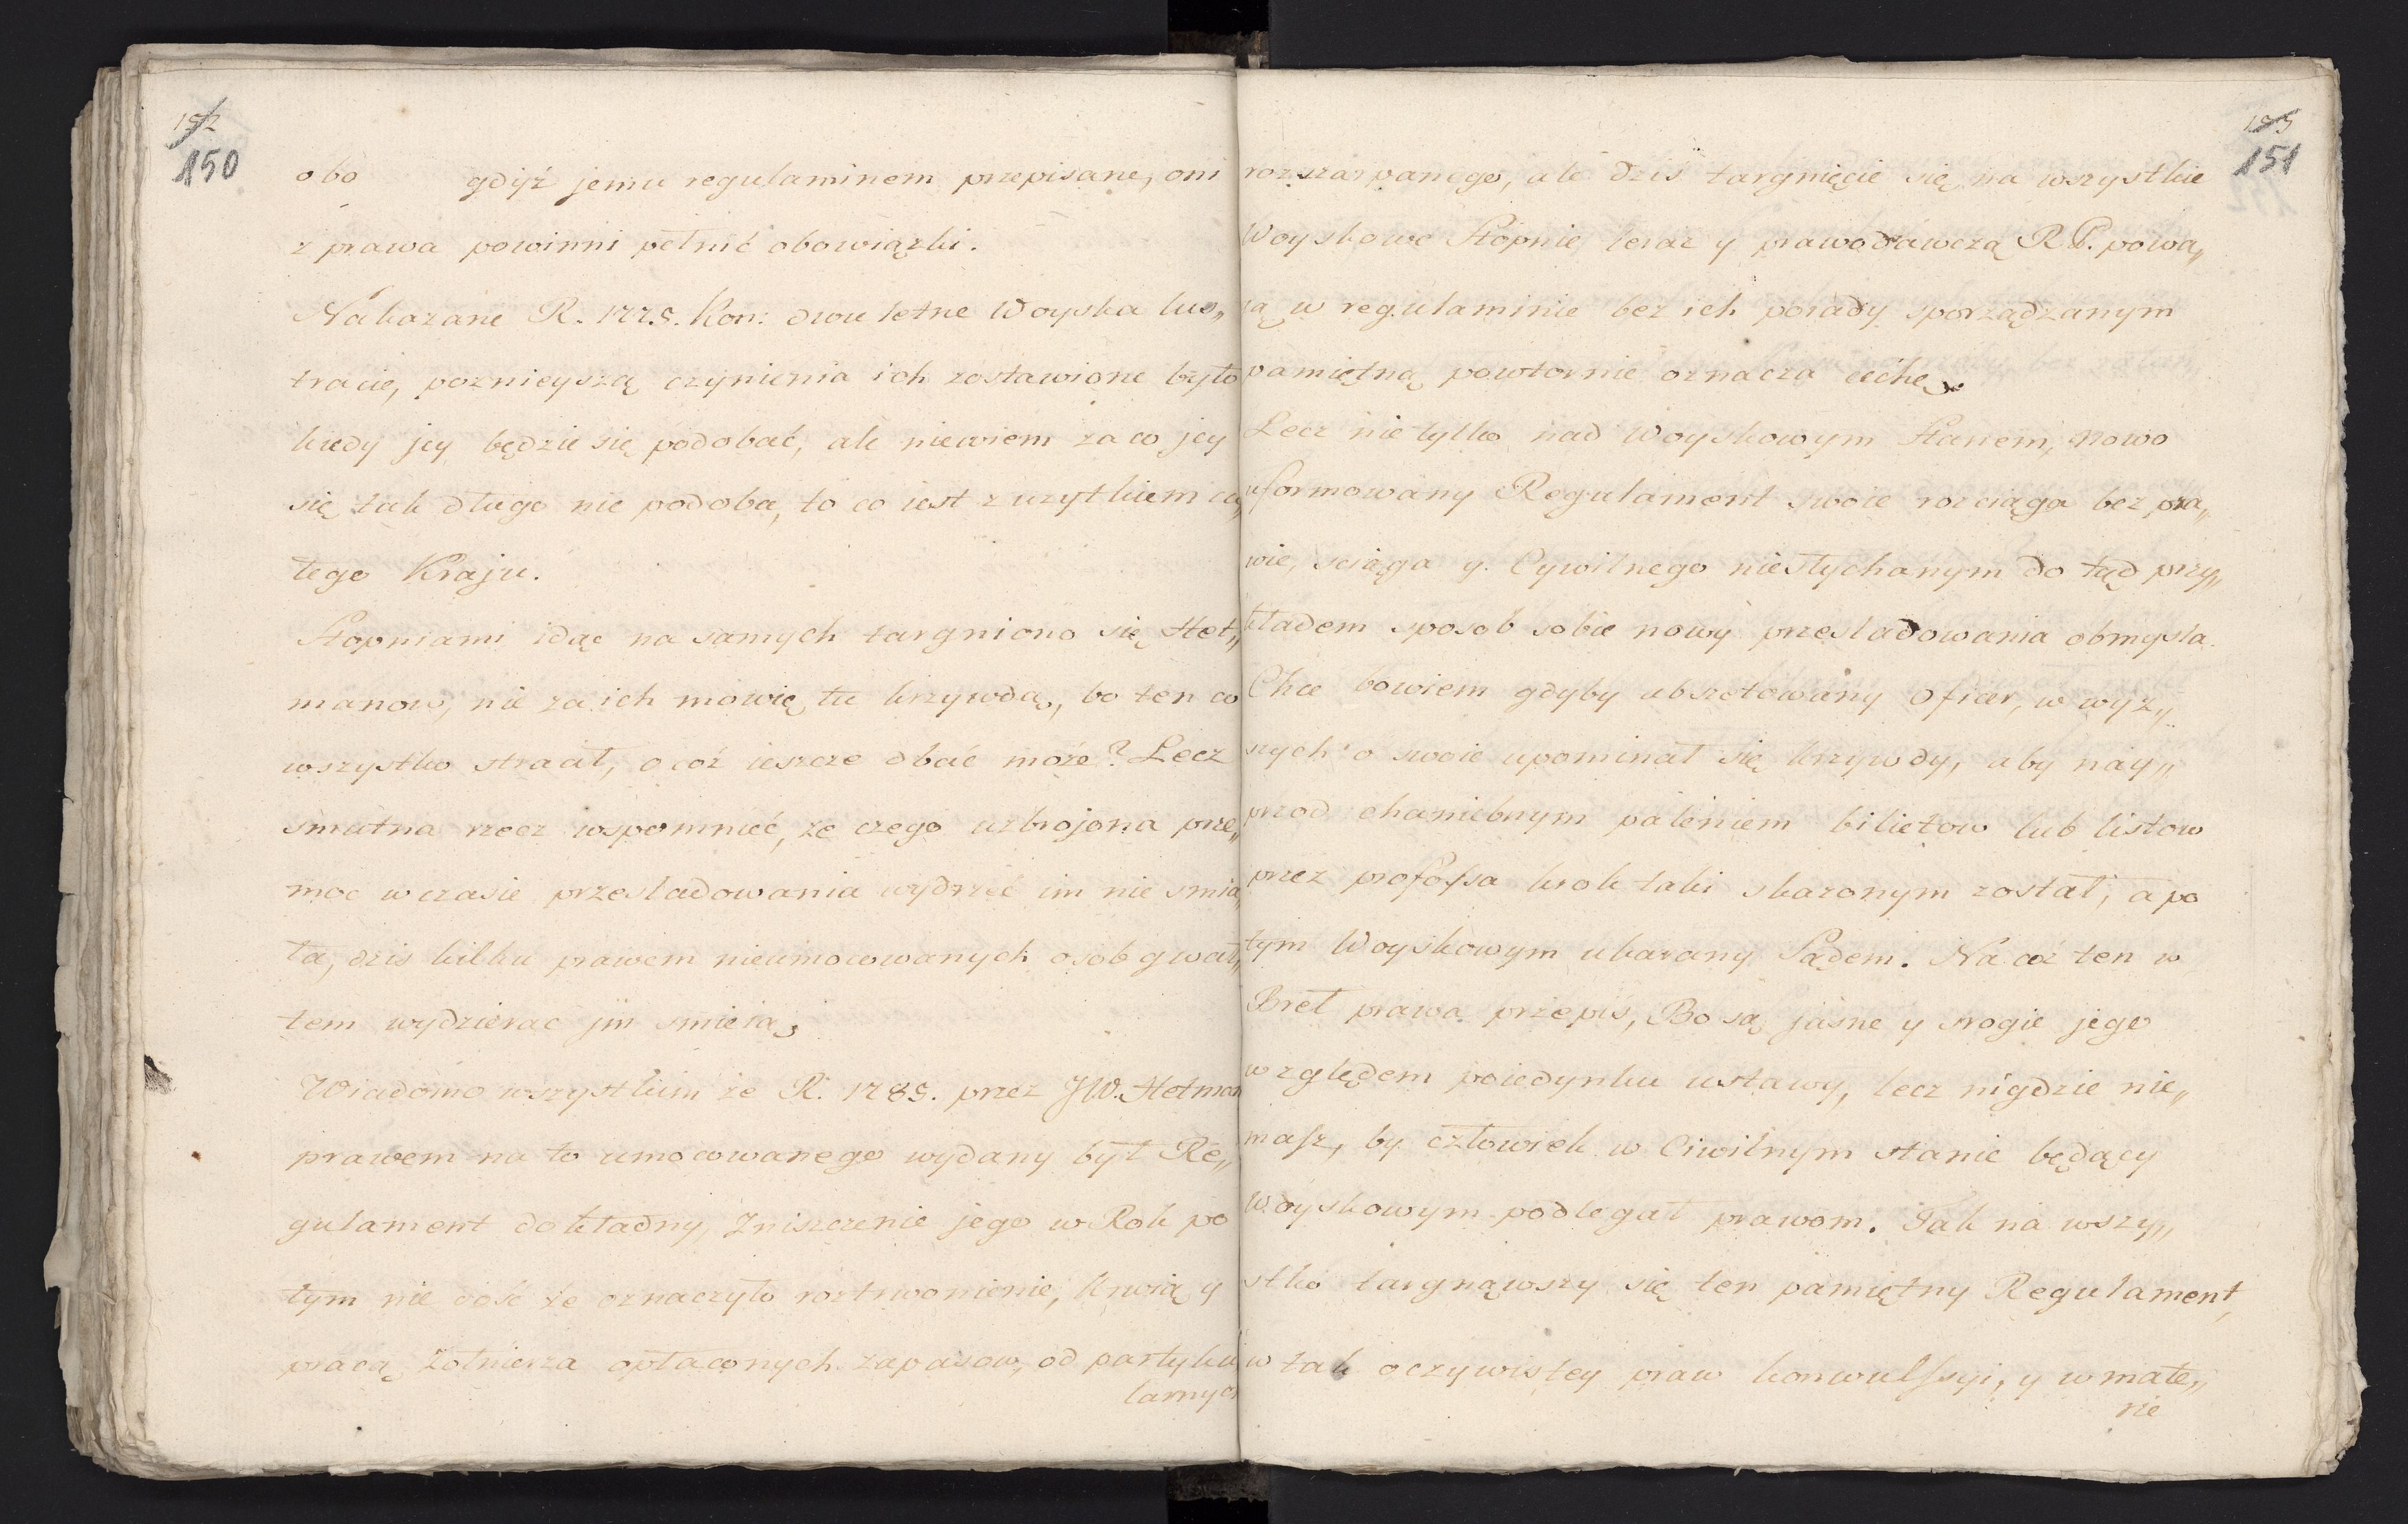 152
150
obo gdyż jemu regulaminem przepisane, oni
z prawa powinni pełnić obowiązki.
Nakazane R. 1775. Kon: dwuletne Woyska lus„
tracie, poznieyszą czynienia ich zostawione było
kiedy jey będzie się podobać, ale niewiem za co jey
się tak długo nie podoba, to co iest z uzytkiem ca„
łego Kraju.
Stopniami idąc na samych targniono się Het„
manow, nie za ich mowię tu krzywdą, bo ten co
wszystko stracił, o coż ieszcze dbać może? Lecz
smutna rzecz wspomnieć, że czego uzbrojona prze„
moc w czasie przesladowania wydrzeć im nie smia„
ła, dzis kilku prawem nieumocowanych osob gwał„
tem wydzierac jm smieią,
Wiadomo wszystkim że R. 1785. przez JW. Hetman
prawem na to umocowanego wydany był Re„
gulament dokładny, Zniszczenie jego w Rok po
tym nie dość że oznaczyło roztrwonienie, krwią y
pracą Zołnierza opłaconych zapasow, od partyku
larnych
153
151
rozszarpanego, ale dzis targnięcie się na wszystkie
Woyskowe Stopnie teraz y prawodawczą R. P. powa„
ią w regulaminie bez ich porady sporządzanym
pamiętną powtornie oznacza cechę.
Lecz nie tylko nad Woyskowym Stanem, nowo
uformowany Regulament swoie rozciąga bezpra„
wie, sciąga y Cywilnego niesłychanym do tąd przy„
kładem sposob sobie nowy przesladowania obmysla.
Chce bowiem gdyby abszetowany oficer, w wyż„
szych o swoie upominał się krzywdy, aby nay„
przod chaniebnym paleniem bilietow lub listow
przez profossa krok taki skazonym został, a po
tym Woyskowym ukarany Sądem. Na coż ten w
Bret prawa przepis, Bo są jasne y srogie jego
względem poiedynku ustawy, lecz nigdzie nie„
masz, by człowiek w Ciwilnym stanie będący
Woyskowym podlegał prawom. Tak na wszy„
stko targnąwszy się ten pamiętny Regulament,
w tak oczywistey praw konwulssyi, y w mate„
rie